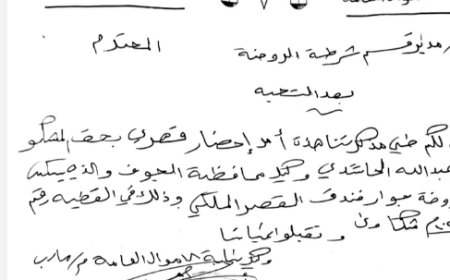 مدير قسم شرطة الروضة
المحترم
بعد التحية
لكم طي مذكرتنا هذه أمر إحضار قهري بحق المشكو
عبدالله الحاشدي وكيل محافظة الجوف والذي يسكن
جوار فندق القصر الملكي وذلك في القضية رقم
وتقبلوا تحياتنا
وكيل نيابة الأموال العامة م/مارب